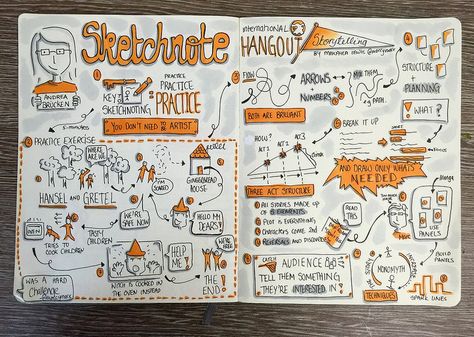 Sketchnote
ANDREA
BRÜCKEN
5-minutes
①
KEY
SKETCHNOTING
PRACTICE
PRACTICE
PRACTICE
YOU DON'T NEED BE ARTIST
② PRACTICE EXERCISE
WHERE
ARE WE
I'M
SCARED
GINGERBREAD
HOUSE
HANSEL and GRETEL
WE'RE
SAFE NOW
HELLO MY
DEARS!
TRIES TO
COOK CHILDREN
TASTY
CHILDREN
HELP
ME!
WITCH IS COOKED IN
THE OVEN INSTEAD
THE
END
WAS A HARD
Challenge
international
HANGOUT
Storytelling
BY MAKAYLA LEWIS @maccymacx
③
FLOW
ARROWS
NUMBERS
MIX THEM
PATH
BOTH ARE BRILLIANT
④
STRUCTURE
+
PLANNING
WHAT?
HOW?
ACT 1
ACT 2
ACT 3
⑤ BREAK IT UP
AND DRAW ONLY WHAT'S
NEEDED
THREE ACT STRUCTURE
ALL STORIES MADE OF
5 ELEMENTS
PLOT IS EVERYTHING
Characters come 2nd
REVERSALS AND
READ
THIS
Manga
USE
PANELS
BUILD
PANELS
AUDIENCE
TELL THEM SOMETHING
THEY'RE INTERESTED IN!
MONOMYTH
TECHNIQUES
SPARK LINES